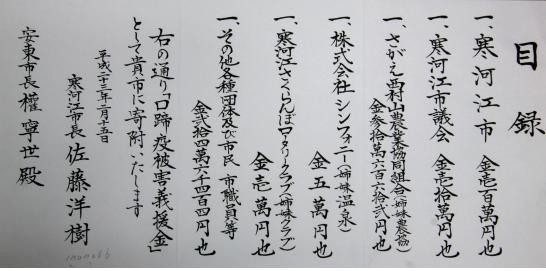 目録
一、寒河江市 金壱百萬円也
一、寒河江市議会 金壱拾萬円也
一、さがえ西村山農業協同組合(姉妹農協)
金参拾萬六百六拾弐円也
一、株式会社シンフォニー(姉妹温泉)
金五萬円也
一、寒河江さくらんぼロータリークラブ(姉妹クラブ)
金壱萬円也
一、その他各種団体及び市民 市職員等
金弐拾四萬六千四百四円也
右の通り「口蹄疫被害義援金」
として貴市に寄附いたします
平成二十三年二月十五日
寒河江市長 佐藤洋樹
安東市長 權寧世殿